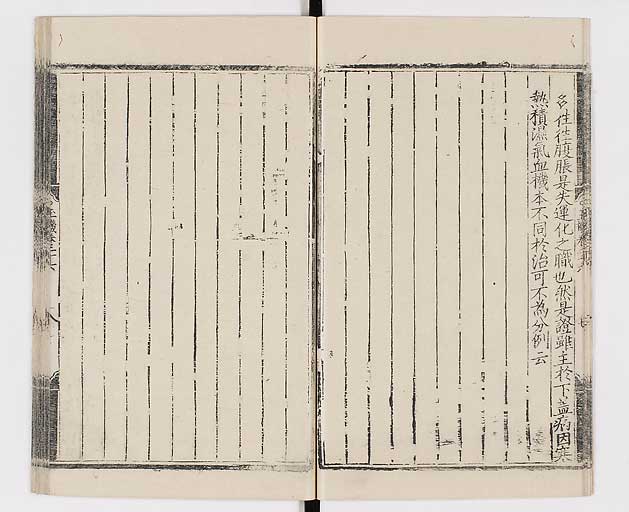 名往往腹脹是失運化之職也然是證雖主於下盖病因寒
熱積濕氣血機本不同於治可不為分例云